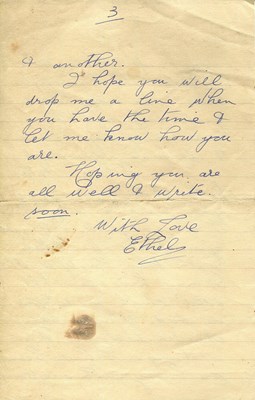 3
& another.
I hope you will
drop me a line when
you have the time &
let me know how you
are.
Hoping you are
all well & write
soon.
With Love
Ethel